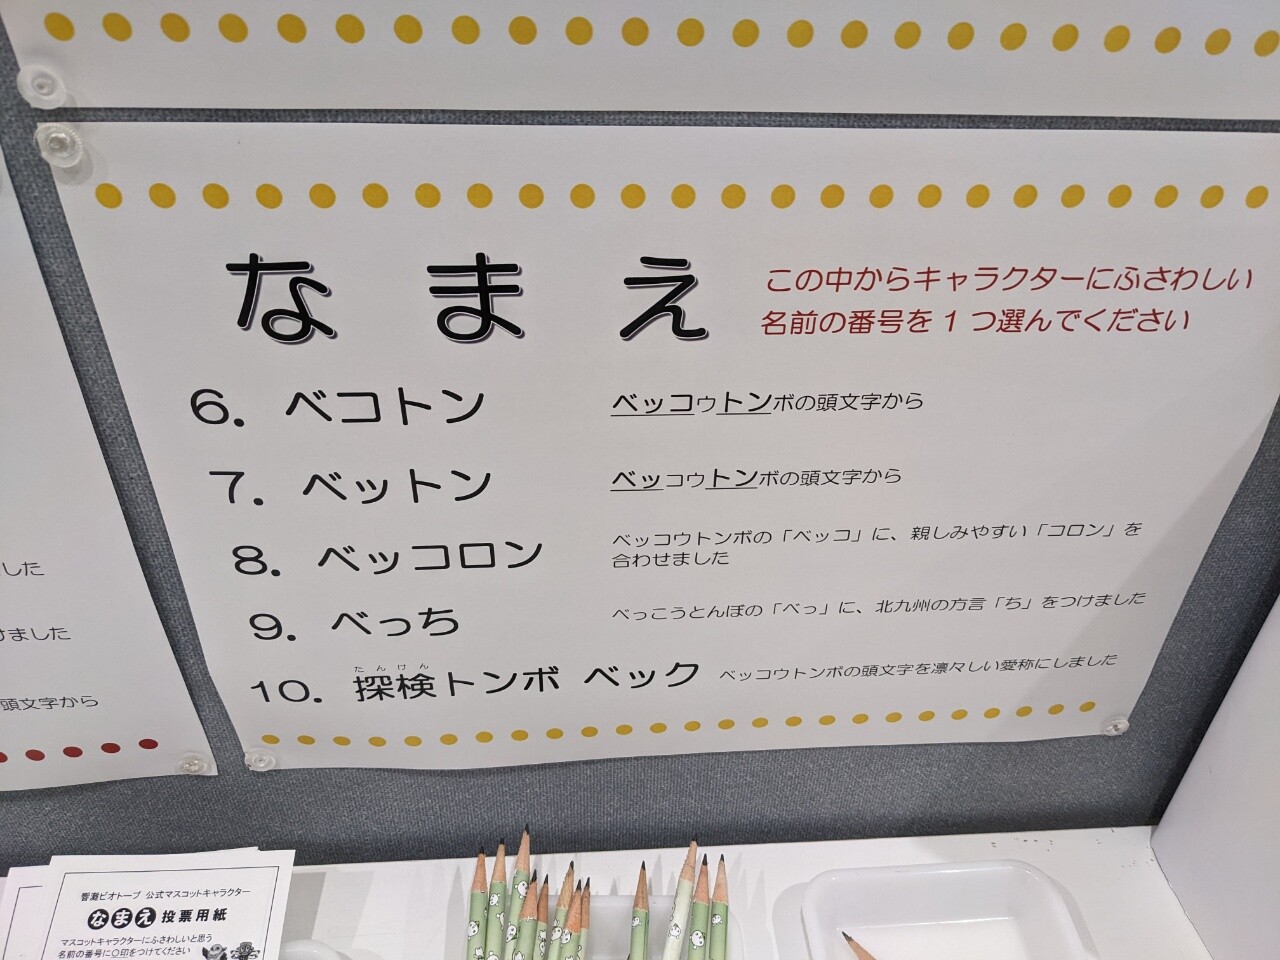 なまえ
この中からキャラクターにふさわしい
名前の番号を1つ選んでください
6. ベコトン ベッコウトンボの頭文字から
7. ベットン ベッコウトンボの頭文字から
8. ベッコロン ベッコウトンボの「ベッコ」に、親しみやすい「コロン」を
合わせました
9. べっち べっこうとんぼの「べっ」に、北九州の方言「ち」をつけました
たんけん
10. 探検トンボ ベック ベッコウトンボの頭文字を凛々しい愛称にしました
した
けました
頭文字から
響灘ビオトープ 公式マスコットキャラクター
なまえ投票用紙
マスコットキャラクターにふさわしいと思う
名前の番号に○印をつけてください